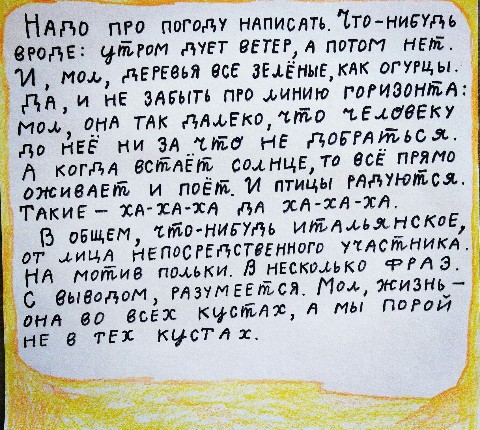 Надо про погоду написать. Что-нибудь
вроде: утром дует ветер, а потом нет.
И, мол, деревья все зелёные, как огурцы.
Да, и не забыть про линию горизонта:
мол, она так далеко, что человеку
до неё ни за что не добраться.
А когда встаёт солнце, то всё прямо
оживает и поёт. И птицы радуются.
Такие – ха-ха-ха да ха-ха-ха.
В общем, что-нибудь итальянское,
от лица непосредственного участника.
На мотив польки. В несколько фраз.
С выводом, разумеется. Мол, жизнь –
она во всех кустах, а мы порой
не в тех кустах.